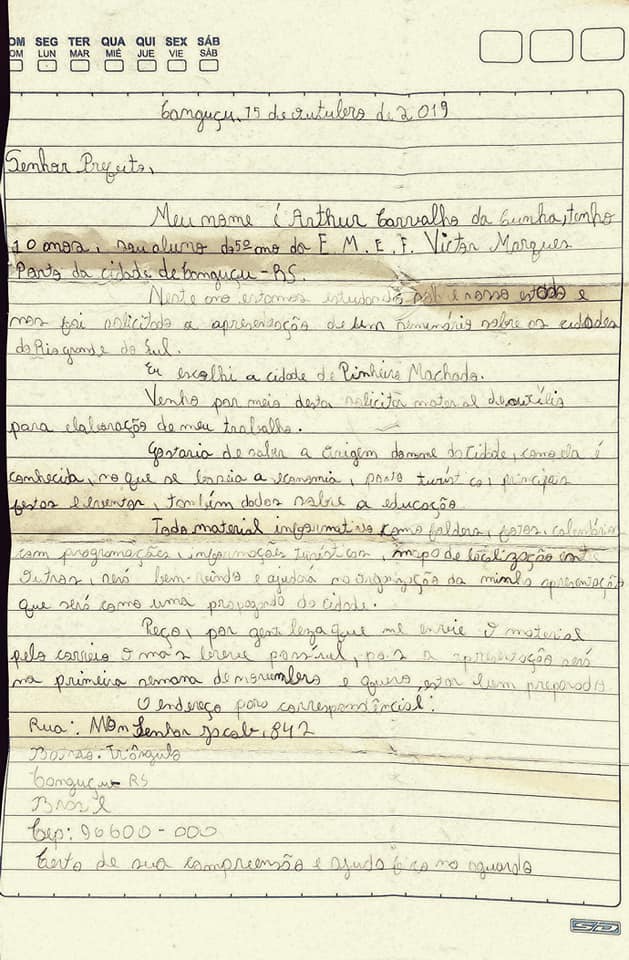 OM SEG TER QUA QUI SEX SÁB
OM LUN MAR MIÉ JUE VIE SÁB
Canguçu, 15 de outubro de 2019
Senhor Prefeito,
Meu nome é Arthur Carvalho da Cunha, tenho
10 anos, sou aluno do 5º ano da E. M. E. F. Victor Marques
Porto da cidade de Canguçu - RS.
Neste ano estamos estudando sob é nosso estado e
nos foi solicitado a apresentação de um seminário sobre as cidades
do Rio grande do Sul.
Eu escolhi a cidade de Pinheiro Machado.
Venho por meio desta solicitar material de auxílio
para elaboração de meu trabalho.
Gostaria de saber a origem do nome da cidade, como ela é
conhecida, no que se baseia a economia, ponto turístico, principais
festas e eventos, também dados sobre a educação.
Todo material informativo como folders, fotos, calendário
com programações, informações turísticas, mapa de localização entre
outros, será bem-vindo e ajudará na organização da minha apresentação
que será como uma propaganda da cidade.
Peço, por gentileza que me envie o material
pelo correio o mais breve possível, pois a apresentação será
na primeira semana de novembro e quero estar bem preparado
O endereço para correspondêncial:
Rua: Monsenhor Jacob, 842
Bairro: Triângulo
Canguçu - RS
Brasil
Cep: 96600-000
Certo de sua compreensão e ajuda fico no aguardo
SD